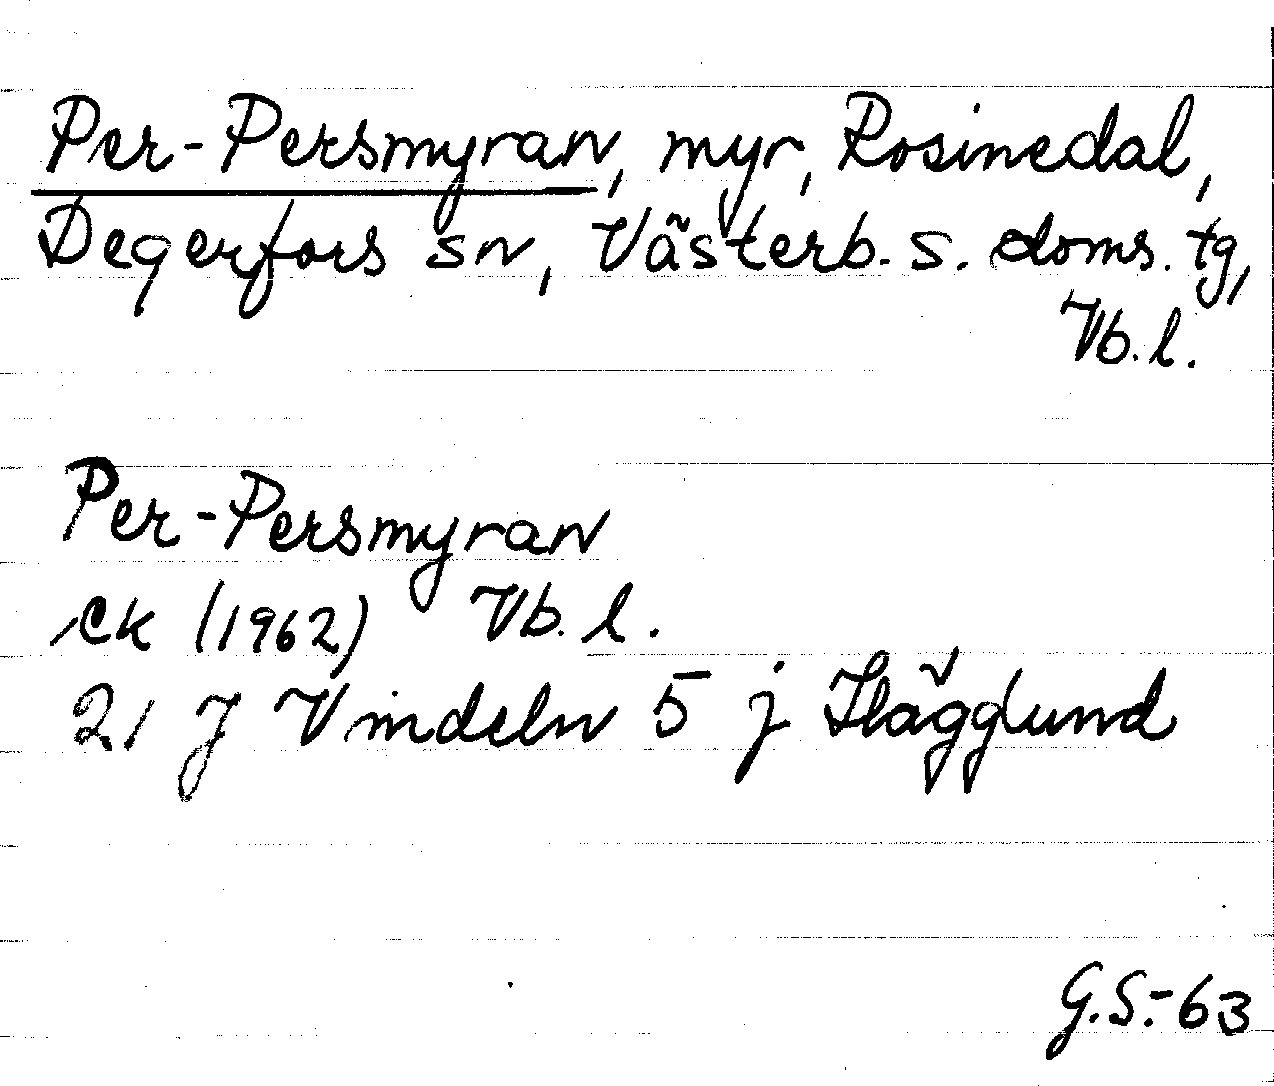 Per-Persmyran, myr, Rosinedal,
Degerfors sn, Västerb. s. doms. tg,
Vb. l.
Per-Persmyran
ek (1962) Vb. l.
21 J Vindeln 5 j Hägglund
G.S.-63